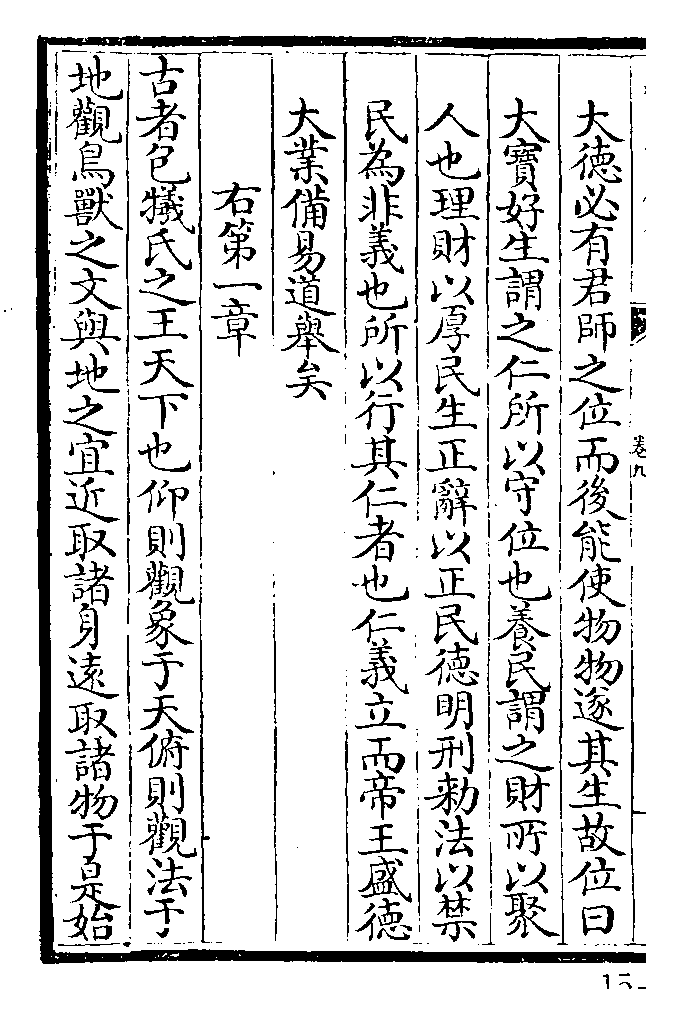 大德必有君師之位而後能使物物遂其生故位曰
大寶好生謂之仁所以守位也養民謂之財所以聚
人也理財以厚民生正辭以正民德明刑勅法以禁
民為非義也所以行其仁者也仁義立而帝王盛德
大業備易道舉矣
右第一章
古者包犧氏之王天下也仰則觀象于天俯則觀法于
地觀鳥獸之文與地之宜近取諸身遠取諸物于是始
卷九
15